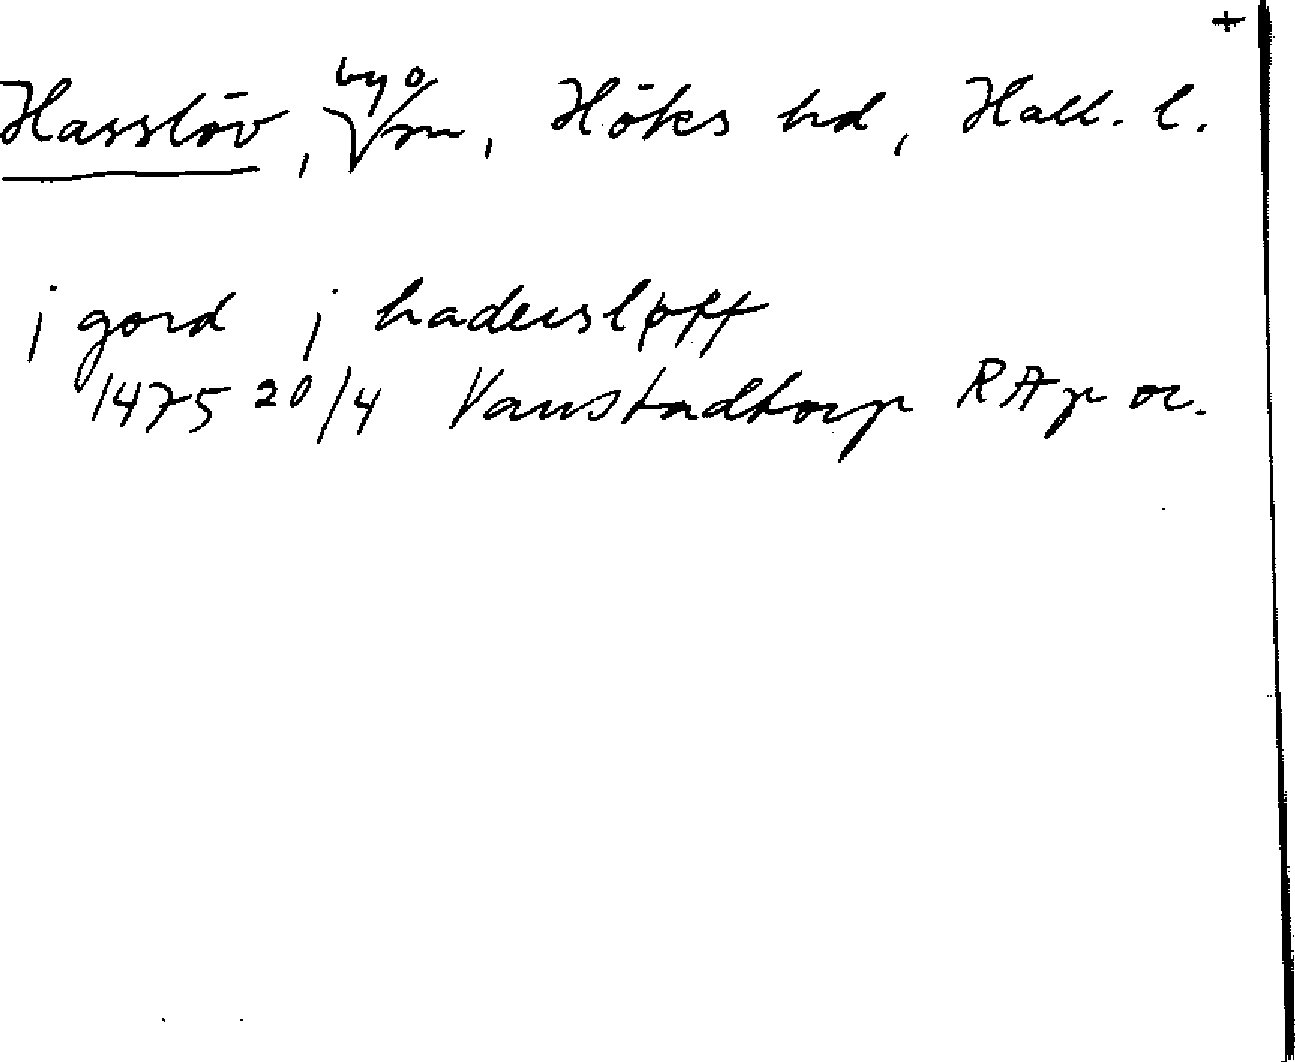 +
Hasslöv, by o sn, Höks hd, Hall. l.
j gord j hadersløff
1475 20/4 Vanstadtorp RAp or.